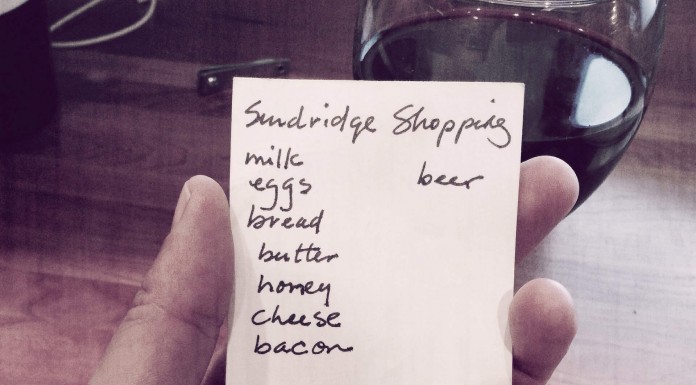 Sundridge Shopping
milk
eggs
beer
bread
butter
honey
cheese
bacon